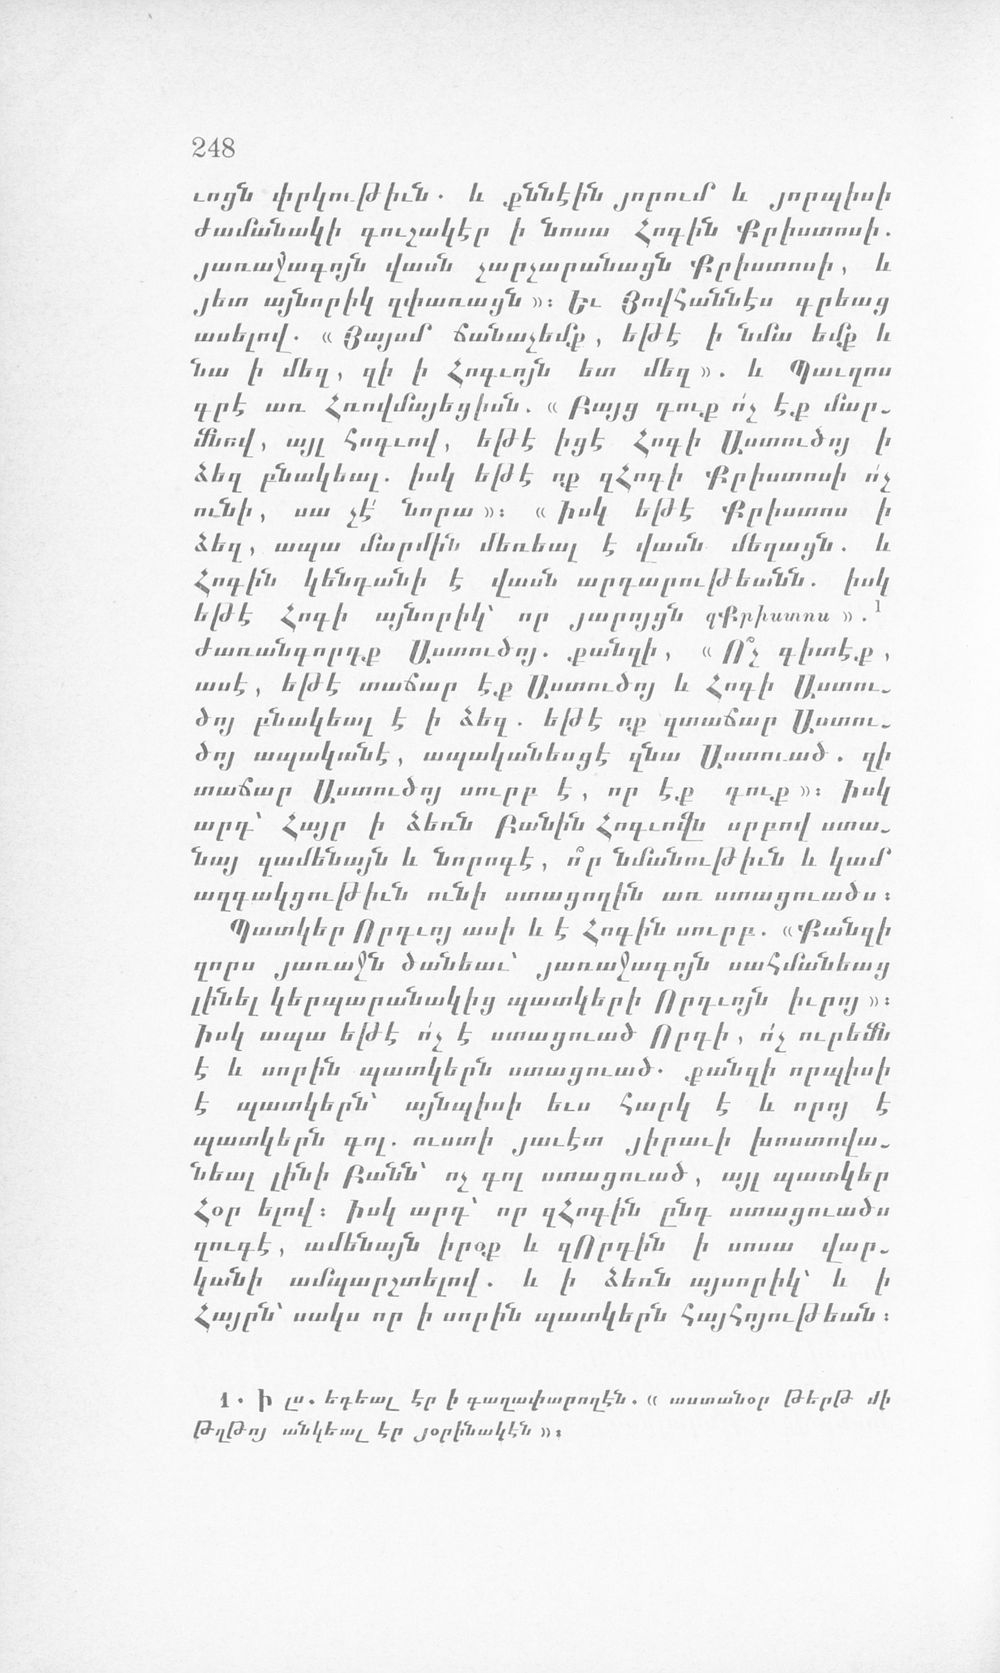 248
ւոցն փրկութիւն. և քննէին յորում և յորպիսի
ժամանակի գուշակէր ի նոսա Հոգին Քրիստոսի.
յառաջագոյն վասն չարչարանացն Քրիստոսի, և
յետ այնորիկ զփառացն»։ Եւ Յովհաննէս գրեաց
ասելով. «Յայսմ ճանաչեմք, եթէ ի նմա եմք և
նա ի մեզ, զի ի Հոգւոյն ետ մեզ». և Պաւղոս
գրէ առ Հռովմայեցիսն. «Բայց դուք ո՛չ էք մար-
մնով, այլ հոգւով, եթէ իցէ Հոգի Աստուծոյ ի
ձեզ բնակեալ. իսկ եթէ ոք զՀոգի Քրիստոսի ո՛չ
ունի, սա չէ՛ նորա»։ «Իսկ եթէ Քրիստոս ի
ձեզ, ապա մարմին մեռեալ է վասն մեղացն. և
Հոգին կենդանի է վասն արդարութեանն. իսկ
եթէ Հոգի այնորիկ՝ որ յարոյցն զՔրիստոս».1
ժառանգորդք Աստուծոյ. քանզի, «Ո՞չ գիտէք,
ասէ, եթէ տաճար էք Աստուծոյ և Հոգի Աստու-
ծոյ բնակեալ է ի ձեզ. եթէ ոք զտաճար Աստու-
ծոյ ապականէ, ապականեսցէ զնա Աստուած. զի
տաճար Աստուծոյ սուրբ է, որ էք դուք»։ Իսկ
արդ՝ Հայր ի ձեռն Բանին Հոգւովն սրբով ստա-
նայ զամենայն և նորոգէ, ո՞ր նմանութիւն և կամ
ազգակցութիւն ունի ստացողին առ ստացուածս։
Պատկեր Որդւոյ ասի և է Հոգին սուրբ. «Քանզի
զորս յառաջն ծանեաւ՝ յառաջագոյն սահմանեաց
լինել կերպարանակից պատկերի Որդւոյն իւրոյ»։
Իսկ ապա եթէ ո՛չ է ստացուած Որդի, ո՛չ ուրեմն
է և սորին պատկերն ստացուած. քանզի որպիսի
է պատկերն՝ այնպիսի եւս հարկ է և որոյ է
պատկերն գոլ. ուստի յաւէտ յիրաւի խոստովա-
նեալ լինի Բանն՝ ոչ գոլ ստացուած, այլ պատկեր
Հօր ելով։ Իսկ արդ՝ որ զՀոգին ընդ ստացուածս
զուգէ, ամենայն իրօք և զՈրդին ի սոսա վար-
կանի ամպարշտելով. և ի ձեռն այսորիկ՝ և ի
Հայրն՝ սակս որ ի սորին պատկերն հայհոյութեան։
1. Ի լս. եդեալ էր ի գաղափարողէն. «աստանօր թերթ մի
թղթոյ անկեալ էր յօրինակէն»։